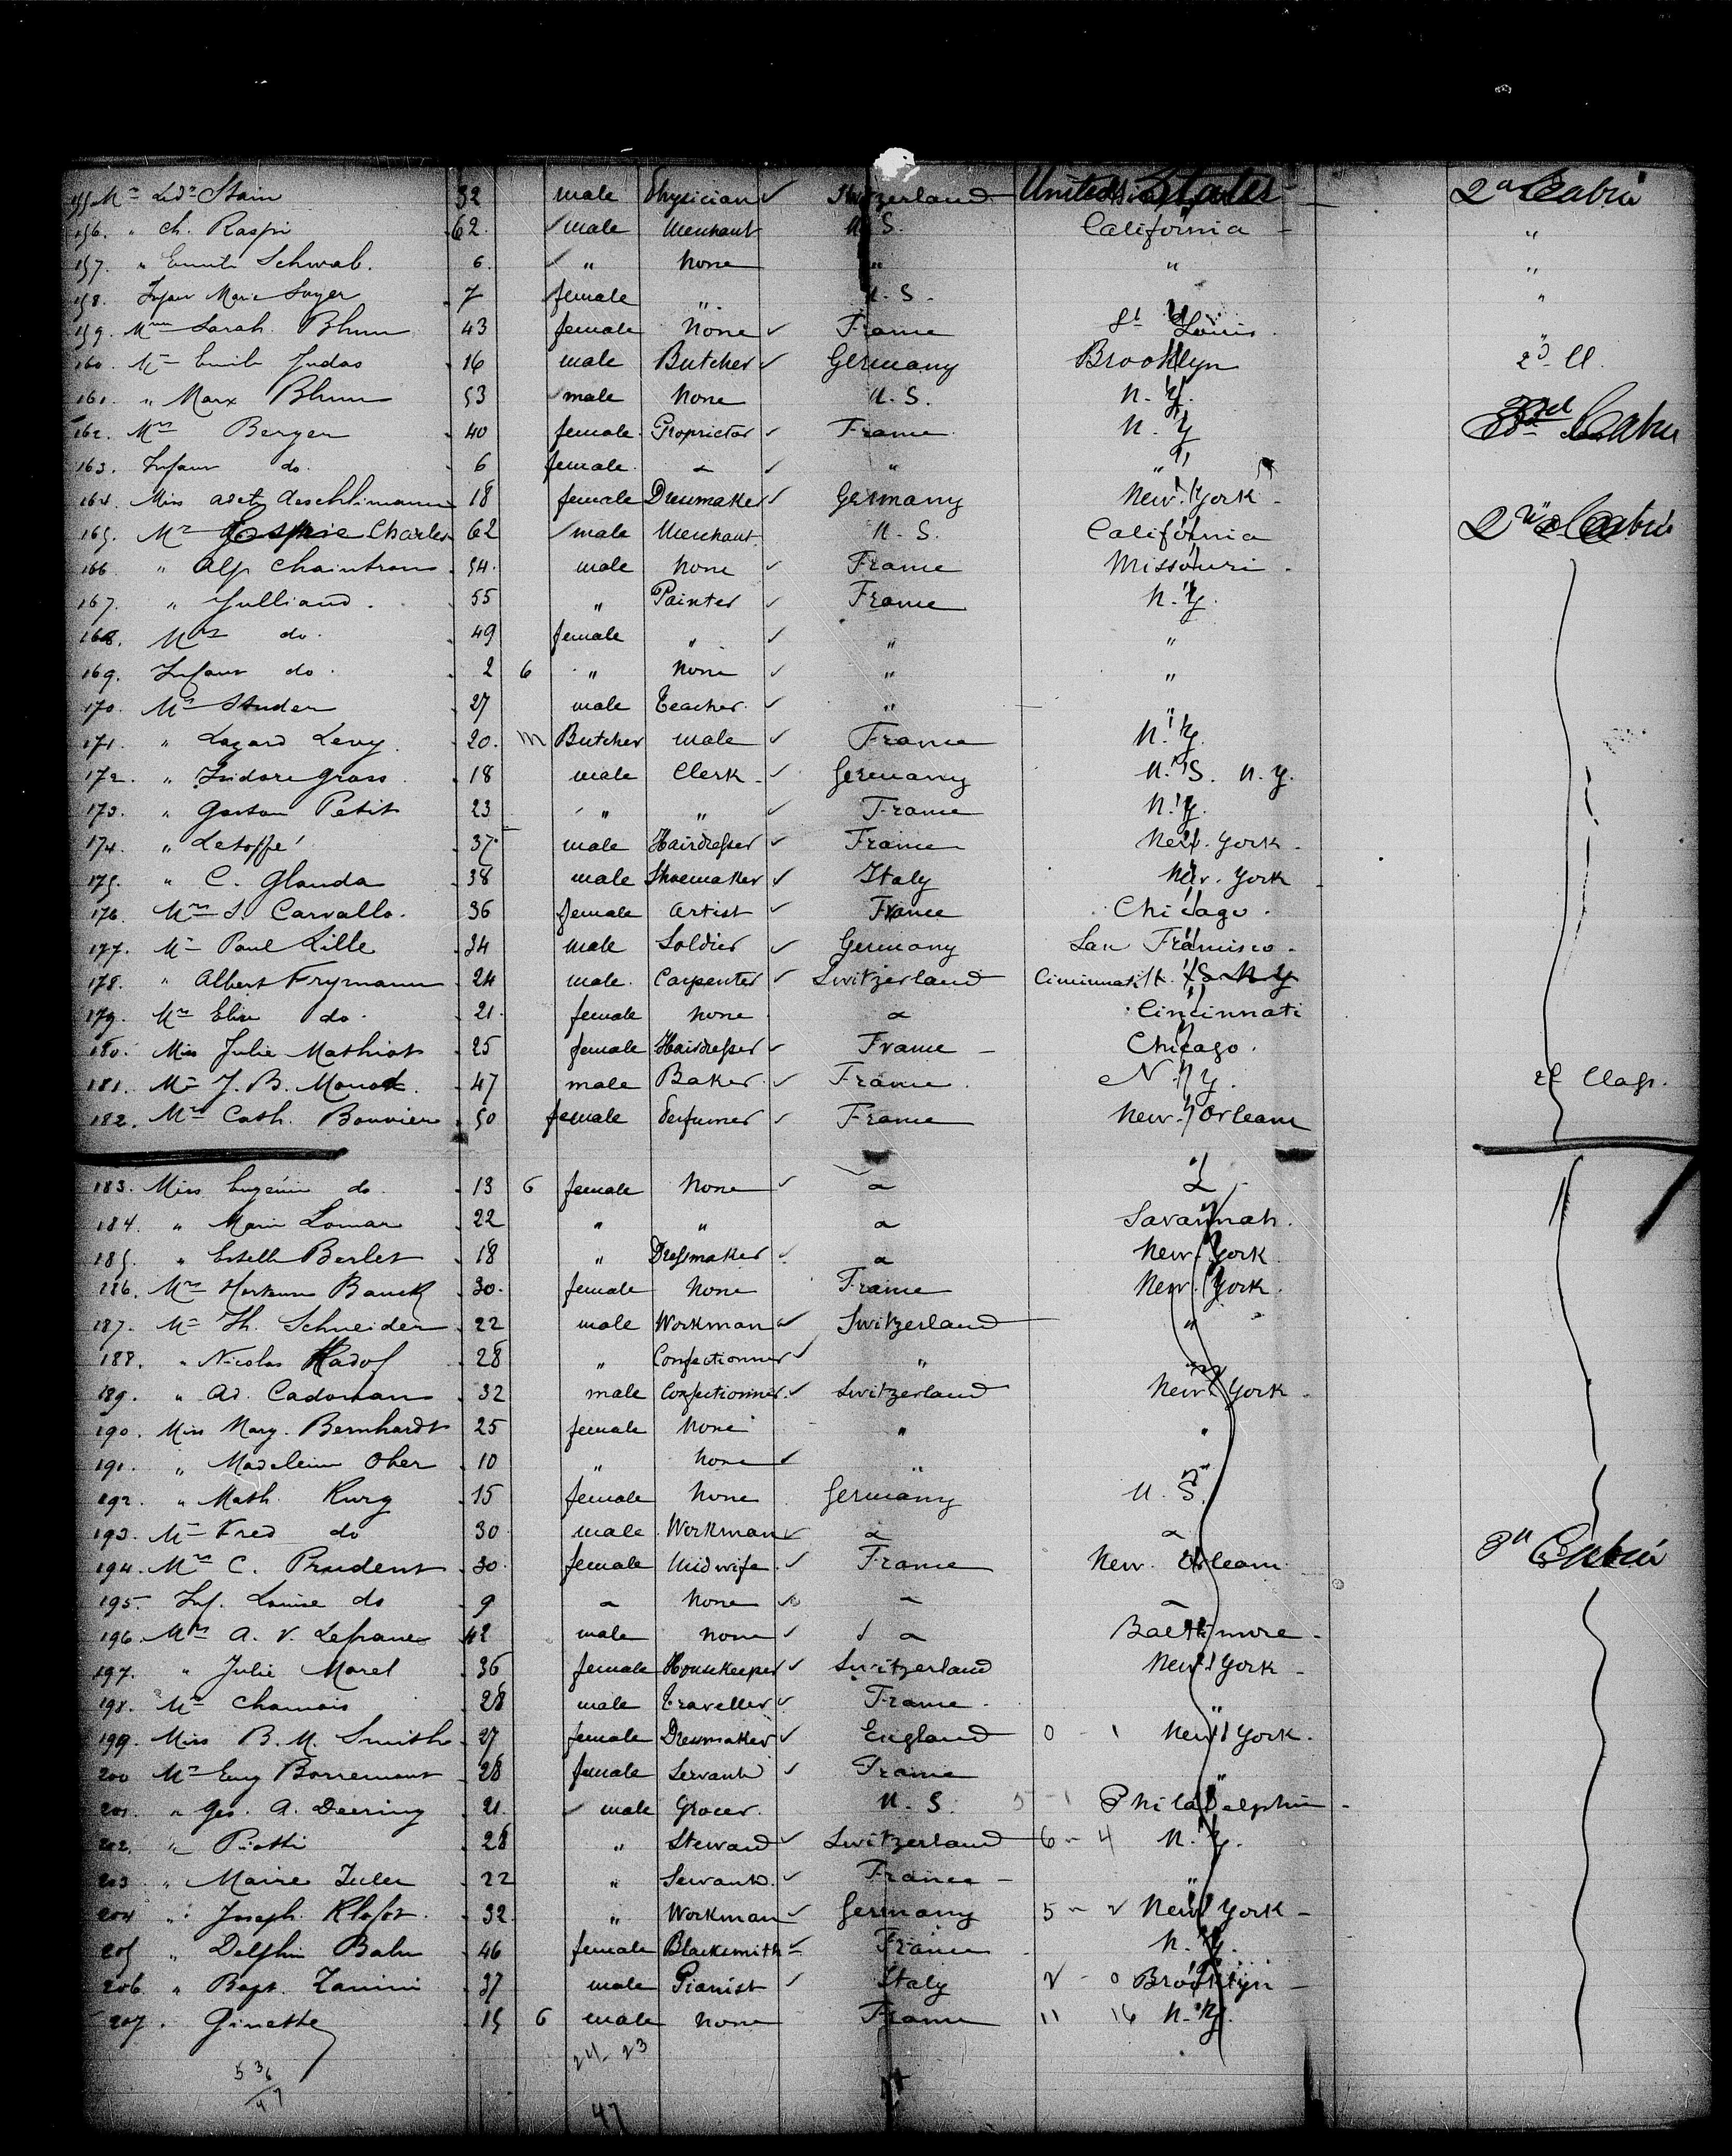 155 Mr Ldr Stain 32 male Physician Switzerland United States 2d Cabin
156. " Ch. Raspi 62. male Merchant U.S. California "
157. " Schwab. 6. " None " " "
158. Infant Marie Sayer 7 female " U.S. "
159. Mme Sarah Blum 43 female None France St Louis "
160. Mr Emile Judas 16 male Butcher Germany Brooklyn 2d Cl.
161. " Marx Blum 53 male None U.S. N.Y.
162. Mrs Berger 40 female Proprietor France N.Y Cabin
163. Infant do. 6 female " "
164. Miss Aeschlimann 18 female Dressmaker Germany New York
165. Mr Charles 62 male Merchant U.S. California 2nd Cabin
166 " Alp. Chaintron 54. male None France Missouri
167. " Julliand. 55 " Painter France N.Y.
168. Mrs do. 49 female " " "
169. Infant do. 2 6 " None " "
170. Mr Studer 27 male Teacher. " "
171. " Lazard Levy. 20. m Butcher male France N.Y.
172. " Isidore Grass 18 male Clerk Germany U.S. N.Y.
173. " Gaston Petit 23 " " France N.Y.
174. " Letoffé 37 male Hairdresser France New York
175. " C. Glauda 38 male Shoemaker Italy New York
176. Mrs S. Carvallo. 36 female Artist France Chicago.
177. Mr Paul Lille 34 male Soldier Germany San Francisco.
178. " Albert Frymann 24 male. Carpenter Switzerland Cincinnati
179. Mrs Elise do. 21. female None " Cincinnati
180. Miss Julie Mathiot 25 female Hairdresser France Chicago.
181. Mr J. B. Monod. 47 male Baker France N.Y. 2d Class.
182. Mrs Cath. Bouvier 50 female Perfumer France New Orleans
183. Miss Eugénie do. 13 6 female None "
184. " Marie Lomar 22 " " " Savannah.
185. " Estelle Berlet 18 " Dressmaker " New York
186. Mrs Hortense Bauck 30. female None France New York.
187. Mr Th. Schneider 22 male Workman Switzerland "
188. " Nicolas Kadof 28 " Confectionner " "
189. " Ad. Cadonau 32 male Confectionner. Switzerland New York
190. Miss Mary. Bernhardt 25 female None " "
191. " Madeleine Oher 10 " None " "
192. " Math. Kurz 15 female None Germany U.S.
193. Mr Fred do 30 male Workman " "
194. Mrs C. Prudent 30. female Midwife. France New Orleans 3d Cabin
195. Inf. Louise do 9 " None " "
196. Mrs A. V. Lefranc 42 male None " Baltimore
197. " Julie Morel 36 female Housekeeper Switzerland New York
198. Mr Chamois 28 male Traveller France "
199. Miss B. M. Smith 27 female Dressmaker England 0 - 1 New York.
200 Mr Eug Borremant 28 female Servant France "
201. " Geo. A. Deering 21. male Grocer. U.S. Philadelphia
202. " Piotti 28 " Steward Switzerland 6 - 4 N.Y.
203 " Maire Juler 22 " Servant. France "
204 " Joseph Klofot. 32. " Workman Germany 5 - 2 New York
205 " Delphin Bahn 46 female Blacksmith France N.Y.
206. " Bapt. Zanini 37 male Pianist Italy 2 - 0 Brooklyn
207. Ginette 15 6 male None France 11 16 N.Y.
24 - 23
5 36
47
47